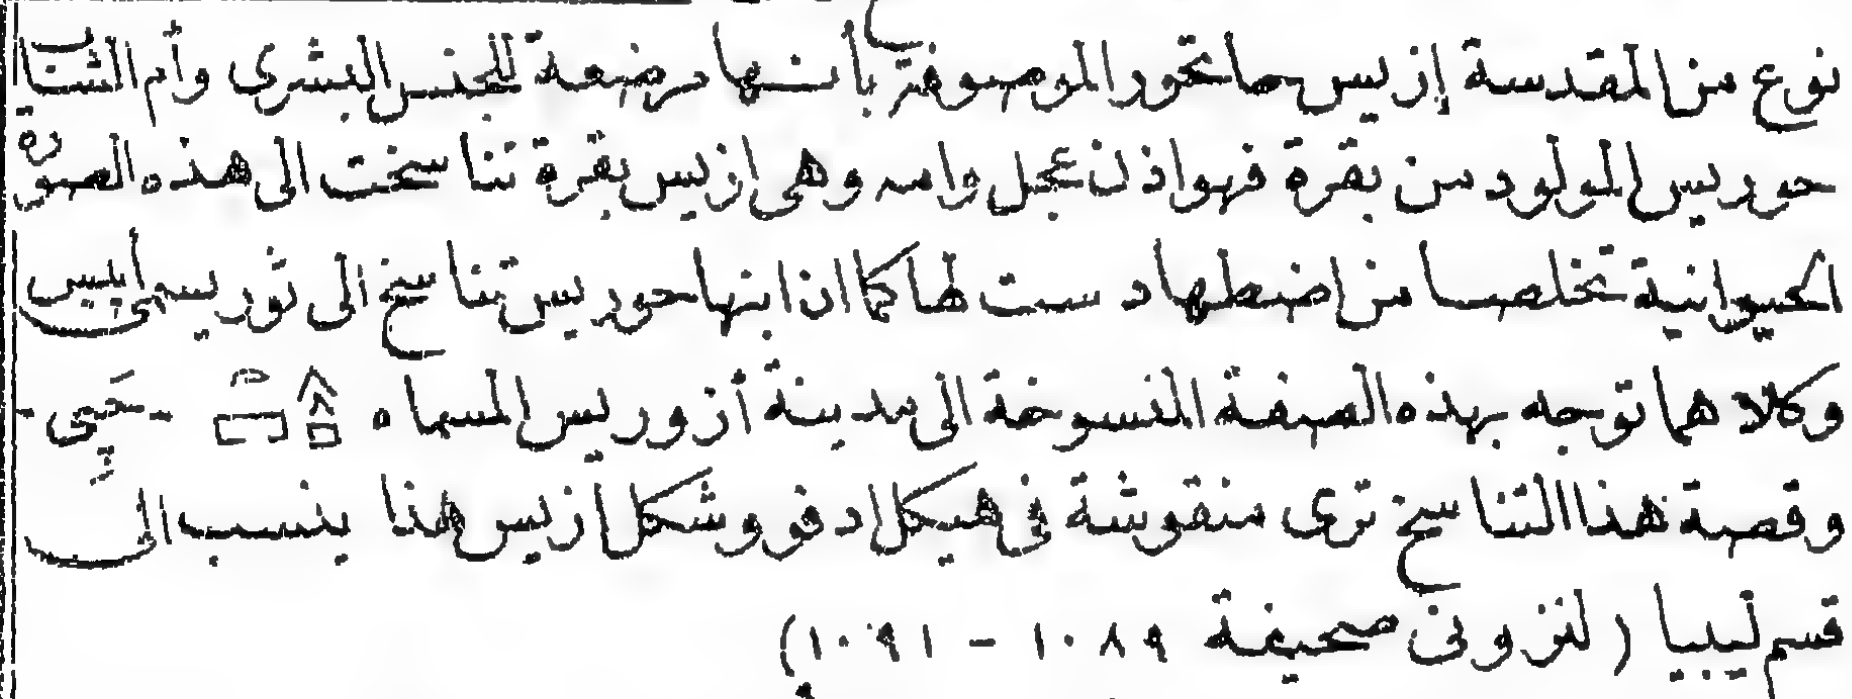 نوع من المقدسة إزيس حاتحور الموصوفة بأنها مرضعة للجنس البشرى وأم الشاب
حوريس المولود من بقرة فهو اذن عجل وامه وهى ازيس بقرة تناسخت الى هذه الصورة
الحيوانية تخلصا من اضطهاد ست لها كما ان ابنها حوريس تناسخ الى ثور يسمى أبيس
وكلاهما توجه بهذه الصفة المنسوخة الى مدينة أزوريس المسماه - حَپِى -
وقصة هذا التناسخ ترى منقوشة فى هيكل ادفو وشكل ازيس هنا ينسب الى
قسم ليبيا (لنزونى صحيفة ١٠٨٩ - ١٠٩١)